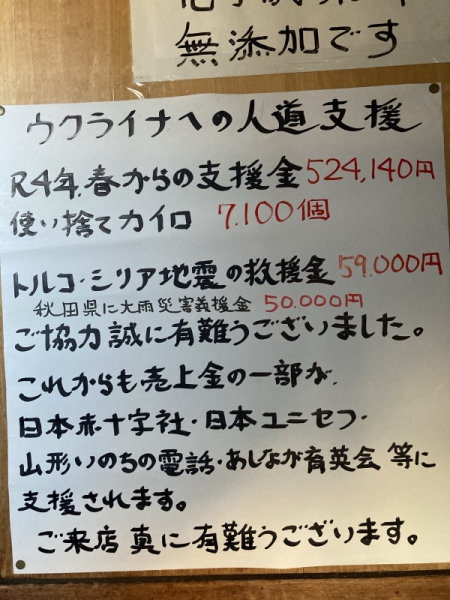 無添加です
ウクライナへの人道支援
R4年.春からの支援金 524,140円
使い捨てカイロ 7.100個
トルコ・シリア地震の救援金 59.000円
秋田県に大雨災害義援金 50.000円
ご協力誠に有難うございました。
これからも売上金の一部が、
日本赤十字社・日本ユニセフ・
山形いのちの電話・あしなが育英会 等に
支援されます。
ご来店 真に有難うございます。